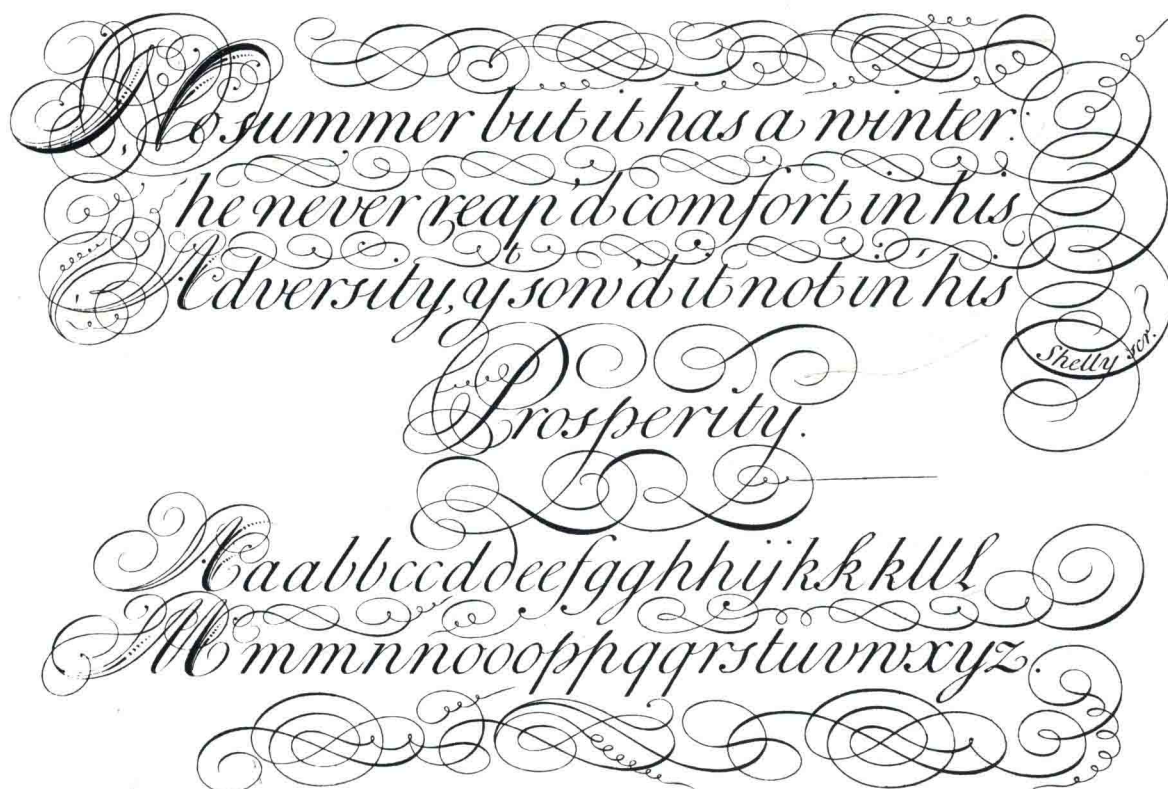 No summer but it has a winter:
he never reap'd comfort in his
Adversity, yt sow'd it not in his
Shelly scr.
Prosperity.
Aaabbccddeefgghhijkkklll
Mmmnnoooppqqrstuvwxyz.